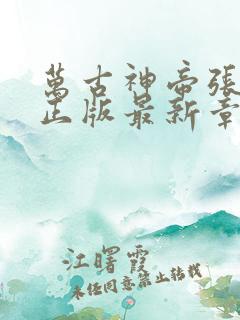 萬古神帝張
正版最新章
江曙霞
未经同意禁止转载